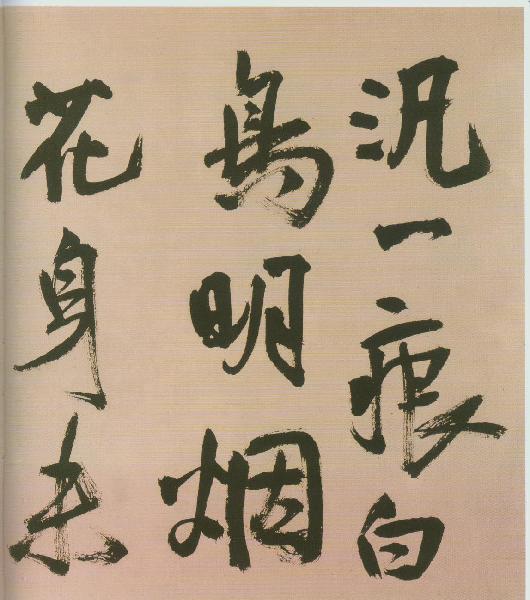 汎一痕白
鳥明烟
花身未